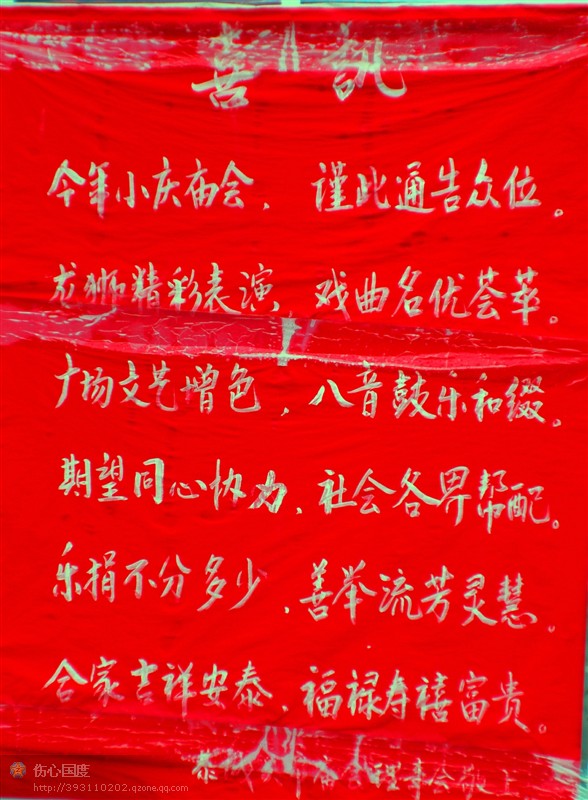 喜讯
今年小庆庙会，谨此通告众位。
龙狮精彩表演，戏曲名优荟萃。
广场文艺增色，八音鼓乐和缀。
期望同心协力，社会各界帮配。
乐捐不分多少，善举流芳灵慧。
合家吉祥安泰，福禄寿禧富贵。
恭城
理事会敬上
伤心国度
http://393110202.qzone.qq.com